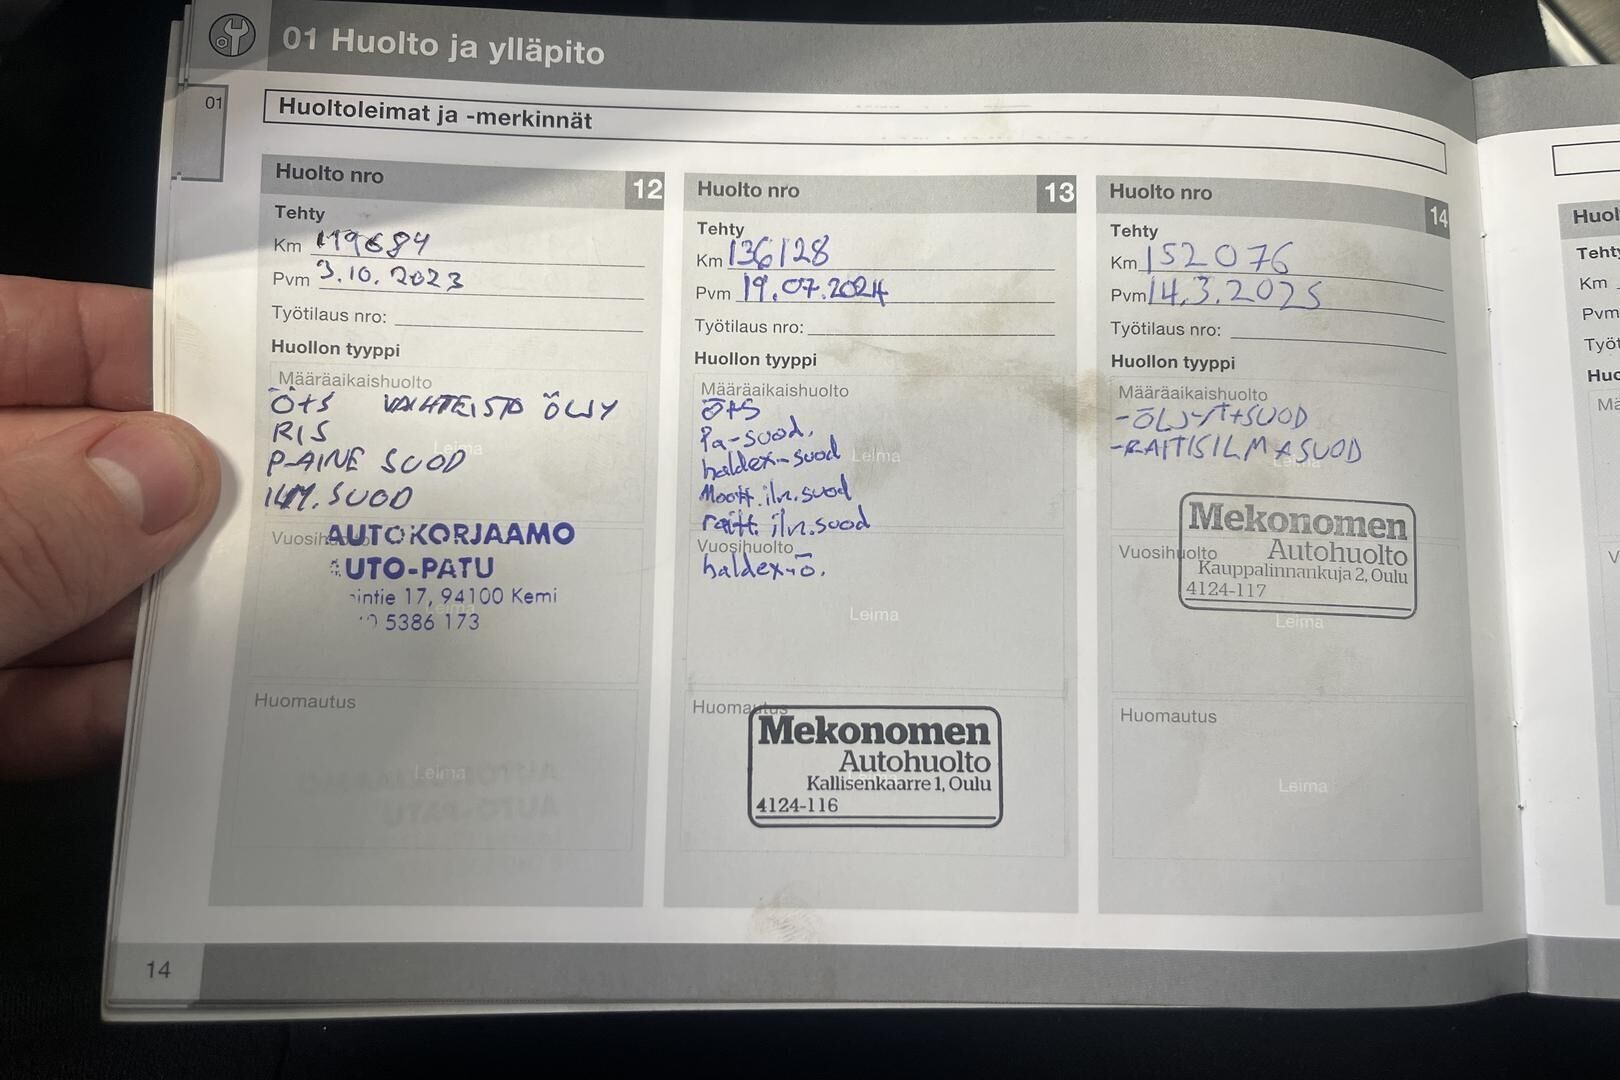 01 Huolto ja ylläpito
01
Huoltoleimat ja -merkinnät
Huolto nro 12
Tehty
Km 119684
Pvm 3.10.2023
Työtilaus nro:
Huollon tyyppi
Määräaikaishuolto
Ö+S VAIHTEISTO ÖLJY
RIS
PAINE SUOD
Leima
ILM. SUOD
Vuosihuolto
AUTOKORJAAMO
AUTO-PATU
intie 17, 94100 Kemi
Leima
5386 173
Huomautus
Leima
Huolto nro 13
Tehty
Km 136128
Pvm 19.07.2024
Työtilaus nro:
Huollon tyyppi
Määräaikaishuolto
Ö+S
Pa-suod.
haldex-suod
Leima
Moott.iln.suod
raitt. iln.suod
Vuosihuolto
haldex-ö.
Leima
Huomautus
Mekonomen
Autohuolto
Kallisenkaarre 1, Oulu
4124-116
Huolto nro 14
Tehty
Km 152076
Pvm 14.3.2025
Työtilaus nro:
Huollon tyyppi
Määräaikaishuolto
-ÖLJYT+SUOD
-RAITISILMASUOD
Leima
Mekonomen
Vuosihuolto
Autohuolto
Kauppalinnankuja 2, Oulu
4124-117
Leima
Huomautus
Leima
14
Huol
Tehty
Km
Pvm
Työt
Huo
Mä
V